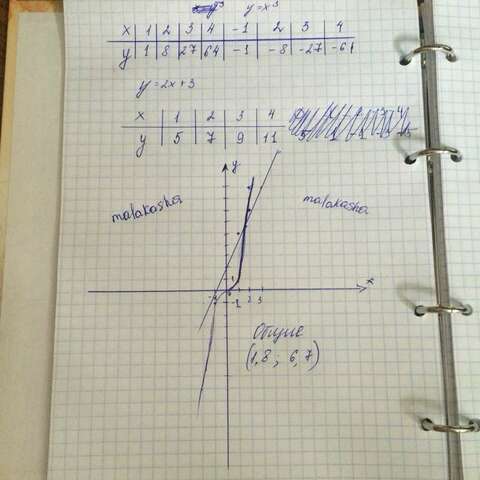 y=x³
x 1 2 3 4 -1 2 3 4
y 1 8 27 64 -1 -8 -27 -61
y=2x+3
x 1 2 3 4
y 5 7 9 11
y
malakasha
malakasha
1
x
-1 -1 2 3
Общие
(1,8; 6,7)